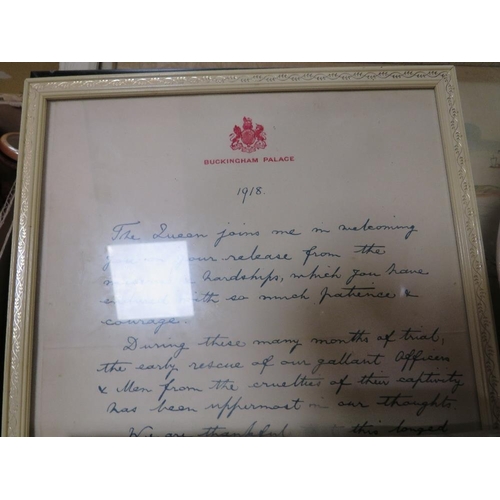 BUCKINGHAM PALACE
1918.
The Queen joins me in welcoming
your release from the
hardships, which you have
with so much patience &
courage.
During these many months of trial,
the early rescue of our gallant Officers
& Men from the cruelties of their captivity
has been uppermost in our thoughts.
We are thankful this longed